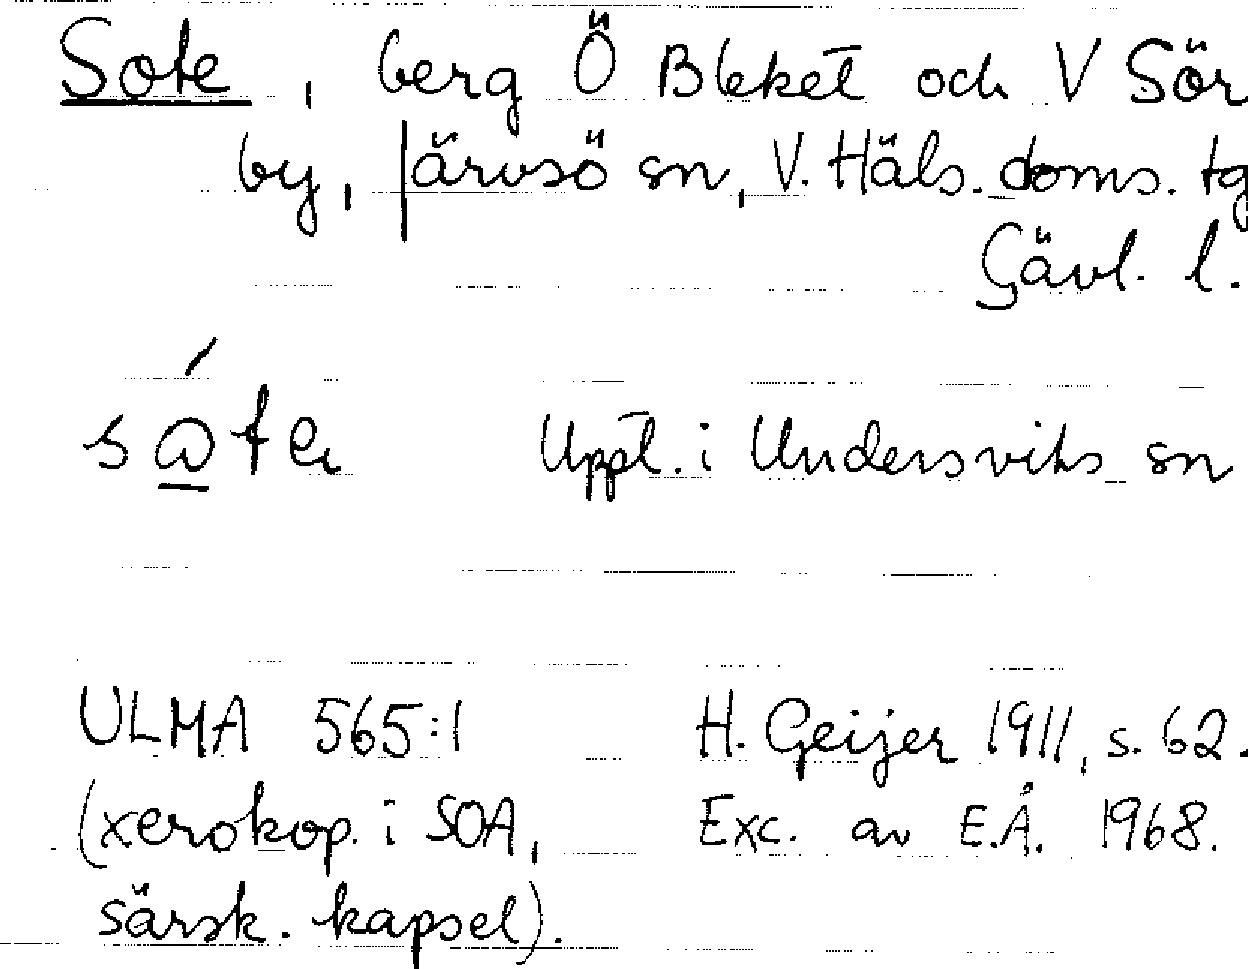 Sote, berg Ö Bleket och V Sör
by, Järvsö sn, V. Häls. doms. tg
Gävl. l.
sá̱te Uppt. i Undersviks sn
ULMA 565:1 H. Geijer 1911, s. 62.
(xerokop. i SOA, Exc. av E.Å. 1968.
särsk. kapsel).